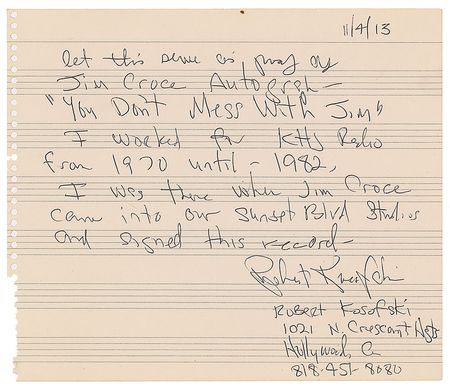 11/4/13
let this serve as proof of
Jim Croce Autogrph-
"You Don't Mess With Jim"
I worked for KHJ Radio
from 1970 until - 1982,
I was there when Jim Croce
came into our Sunset Blvd Studios
and signed this record-
Robert Kosofski
1021 N. Crescent Hgts
Hollywood, Ca
818-451-8080